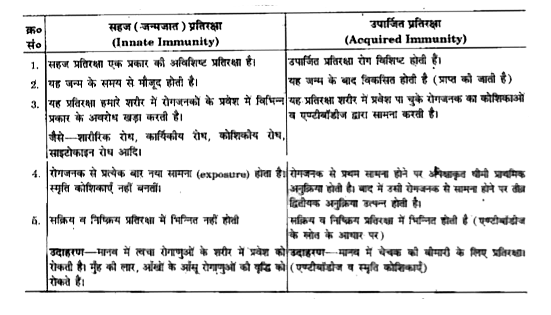 क्र० सं०
सहज (जन्मजात) प्रतिरक्षा
(Innate Immunity)
उपार्जित प्रतिरक्षा
(Acquired Immunity)
1. सहज प्रतिरक्षा एक प्रकार की अविशिष्ट प्रतिरक्षा है।
उपार्जित प्रतिरक्षा रोग विशिष्ट होती है।
2. यह जन्म के समय से मौजूद होती है।
यह जन्म के बाद विकसित होती है (प्राप्त की जाती है)
3. यह प्रतिरक्षा हमारे शरीर में रोगजनकों के प्रवेश में विभिन्न
प्रकार के अवरोध खड़ा करती है।
जैसे—शारीरिक रोध, कार्यिकीय रोध, कोशिकीय रोध,
साइटोकाइन रोध आदि।
यह प्रतिरक्षा शरीर में प्रवेश पा चुके रोगजनक का कोशिकाओं
व एण्टीबॉडीज द्वारा सामना करती है।
4. रोगजनक से प्रत्येक बार नया सामना (exposure) होता है।
स्मृति कोशिकाएँ नहीं बनतीं।
रोगजनक से प्रथम सामना होने पर अपेक्षाकृत धीमी प्राथमिक
अनुक्रिया होती है। बाद में उसी रोगजनक से सामना होने पर तीव्र
द्वितीयक अनुक्रिया उत्पन्न होती है।
5. सक्रिय व निष्क्रिय प्रतिरक्षा में भिन्नित नहीं होती
सक्रिय व निष्क्रिय प्रतिरक्षा में भिन्नित होती है (एण्टीबॉडीज
के स्रोत के आधार पर)
उदाहरण—मानव में त्वचा रोगाणुओं के शरीर में प्रवेश को
रोकती है। मुँह की लार, आँखों के आँसू रोगाणुओं की वृद्धि को
रोकते हैं।
उदाहरण—मानव में चेचक की बीमारी के लिए प्रतिरक्षा।
(एण्टीबॉडीज व स्मृति कोशिकाएँ)